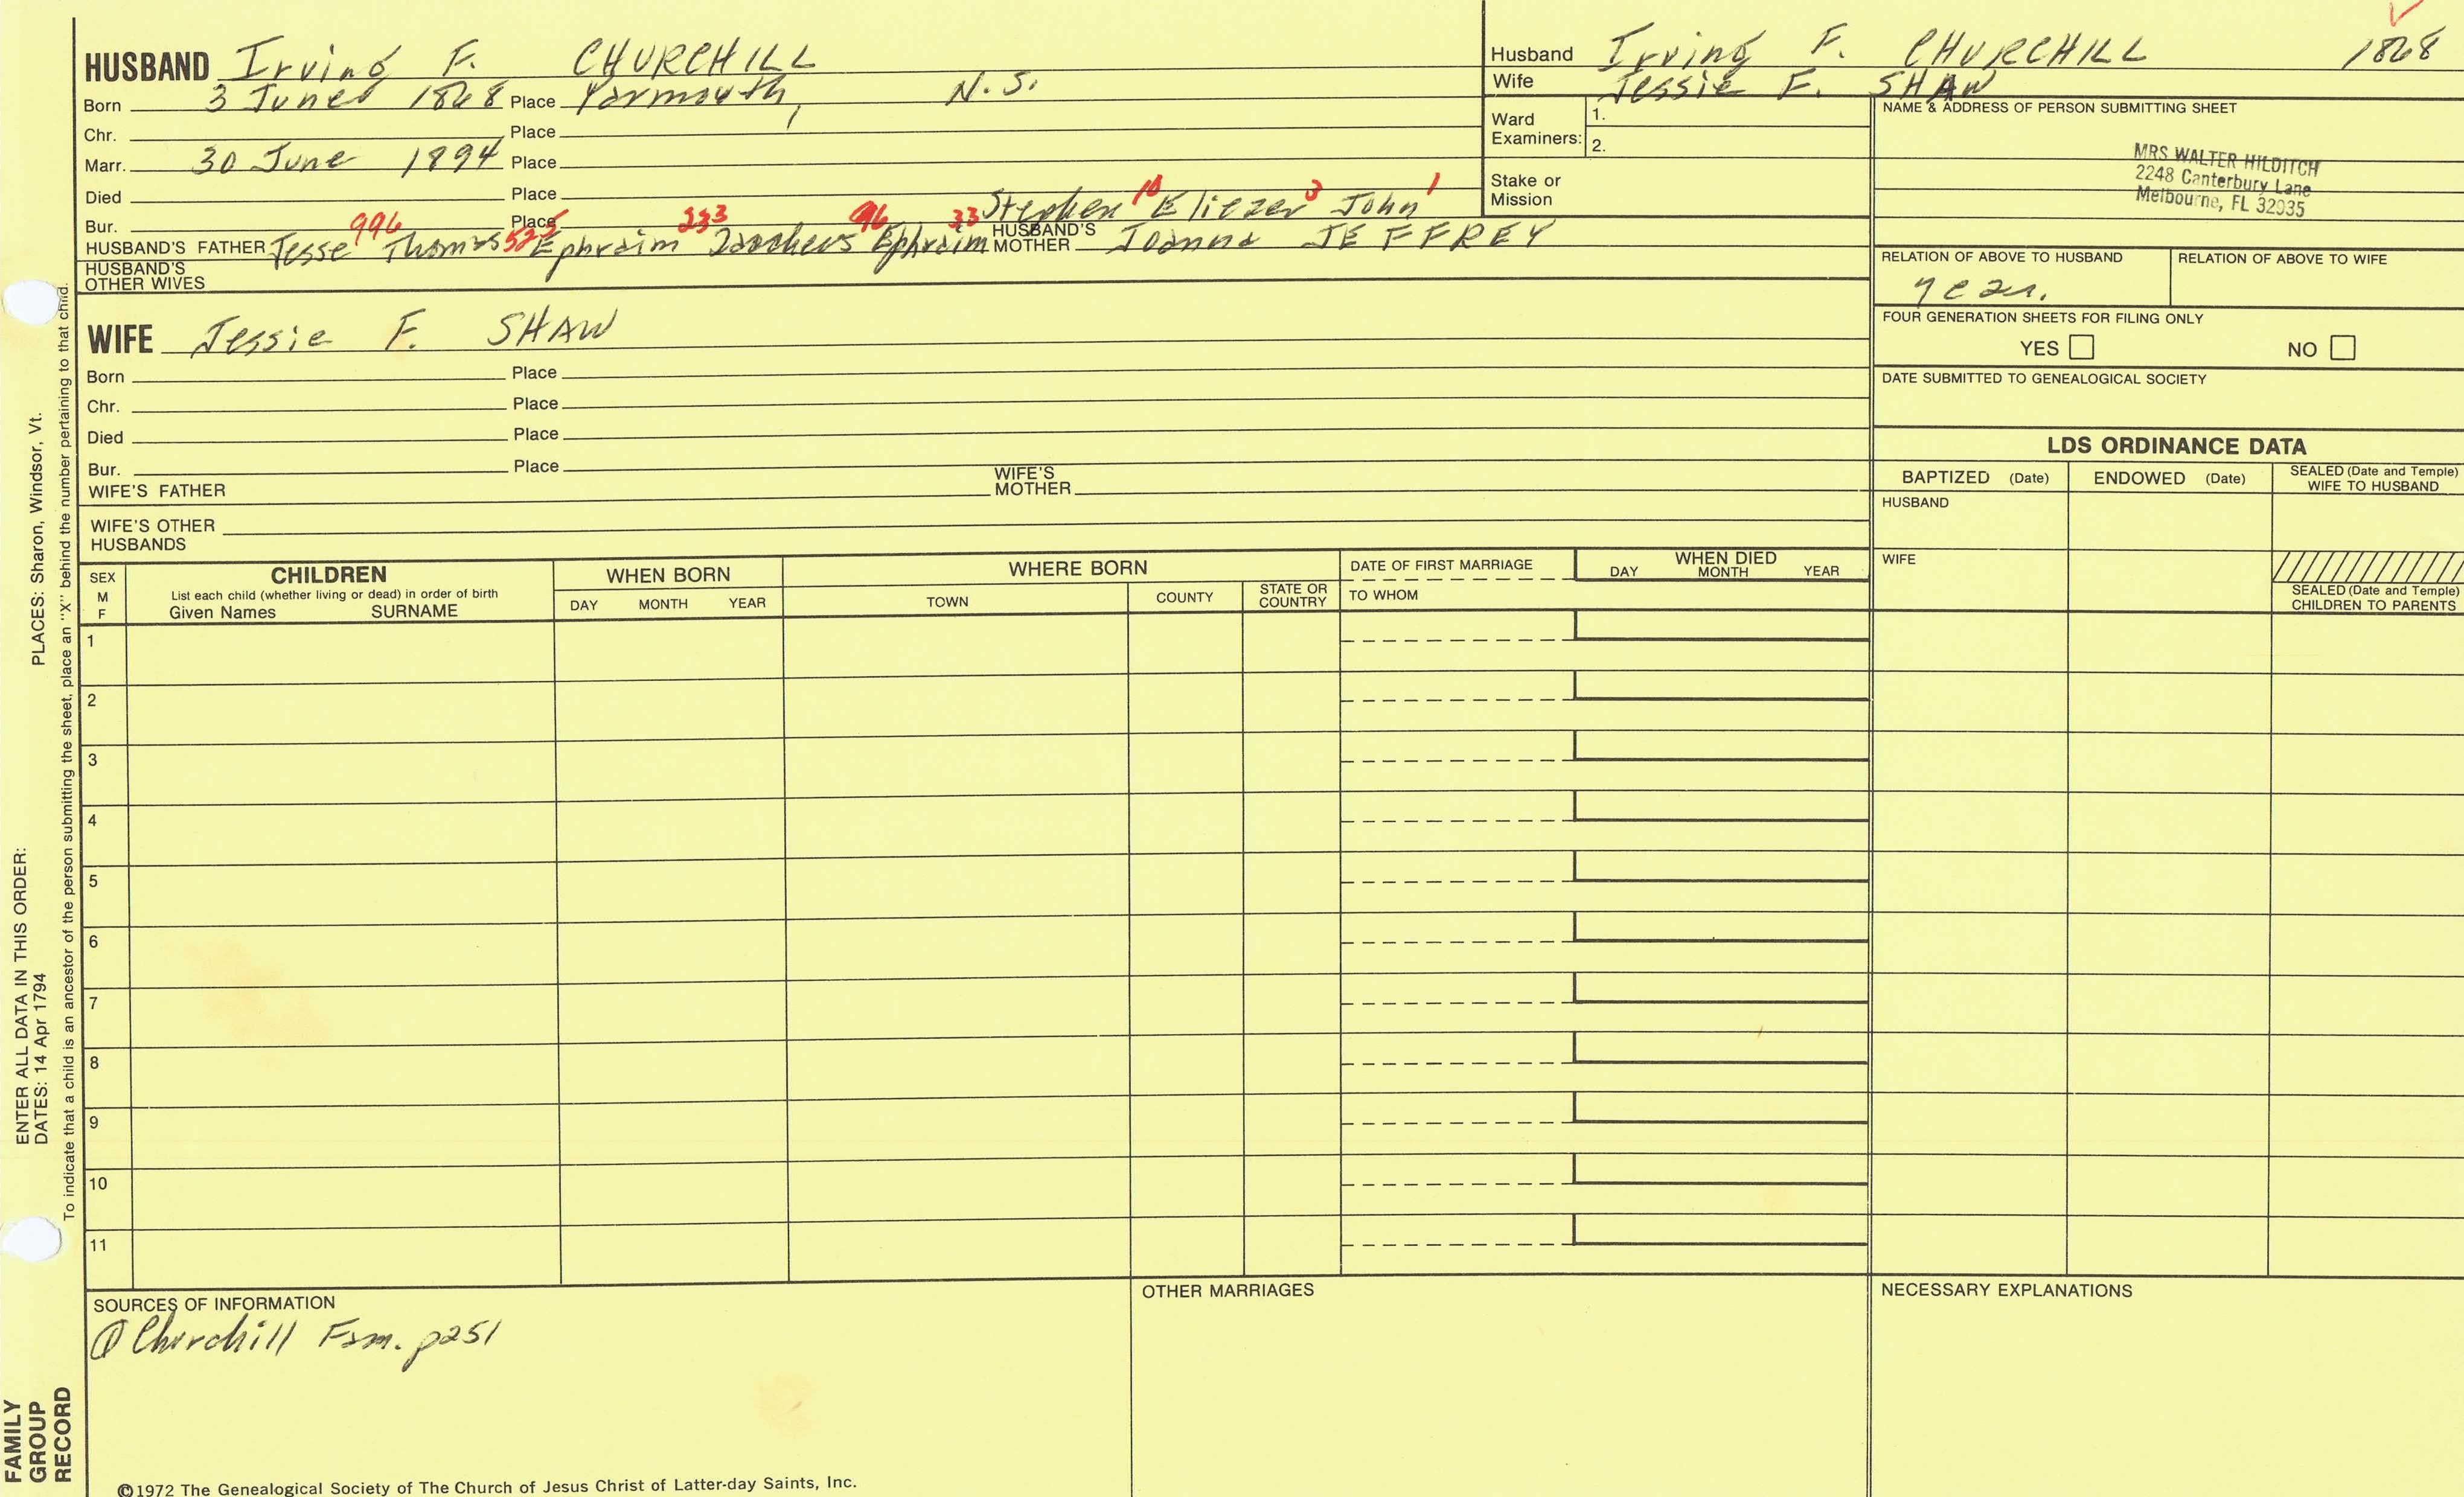 HUSBAND Irving F. CHURCHILL
Born 3 June 1868 Place Yarmouth, N.S.
Chr. Place
Marr. 30 June 1894 Place
Died Place
Bur. Place
996 525 253 96 33 Stephen 10 Eliezer 3 John 1
HUSBAND'S FATHER Jesse Thomas Ephraim Zaccheus Ephraim HUSBAND'S MOTHER Joanna JEFFREY
HUSBAND'S OTHER WIVES
Husband Irving F. CHURCHILL 1868
Wife Jessie F. SHAW
Ward Examiners: 1.
2.
Stake or Mission
NAME & ADDRESS OF PERSON SUBMITTING SHEET
MRS WALTER HILDITCH
2248 Canterbury Lane
Melbourne, FL 32935
RELATION OF ABOVE TO HUSBAND RELATION OF ABOVE TO WIFE
FOUR GENERATION SHEETS FOR FILING ONLY
YES NO
DATE SUBMITTED TO GENEALOGICAL SOCIETY
WIFE Jessie F. SHAW
Born Place
Chr. Place
Died Place
Bur. Place
WIFE'S FATHER WIFE'S MOTHER
WIFE'S OTHER HUSBANDS
LDS ORDINANCE DATA
BAPTIZED (Date) ENDOWED (Date) SEALED (Date and Temple) WIFE TO HUSBAND
HUSBAND
WIFE
SEALED (Date and Temple) CHILDREN TO PARENTS
SEX M F
CHILDREN
List each child (whether living or dead) in order of birth
Given Names SURNAME
WHEN BORN
DAY MONTH YEAR
WHERE BORN
TOWN COUNTY STATE OR COUNTRY
DATE OF FIRST MARRIAGE
TO WHOM
WHEN DIED
DAY MONTH YEAR
1
2
3
4
5
6
7
8
9
10
11
SOURCES OF INFORMATION
① Churchill Fam. p251
OTHER MARRIAGES
NECESSARY EXPLANATIONS
©1972 The Genealogical Society of The Church of Jesus Christ of Latter-day Saints, Inc.
ENTER ALL DATA IN THIS ORDER:
DATES: 14 Apr 1794
PLACES: Sharon, Windsor, Vt.
To indicate that a child is an ancestor of the person submitting the sheet, place an "X" behind the number pertaining to that child.
FAMILY
GROUP
RECORD